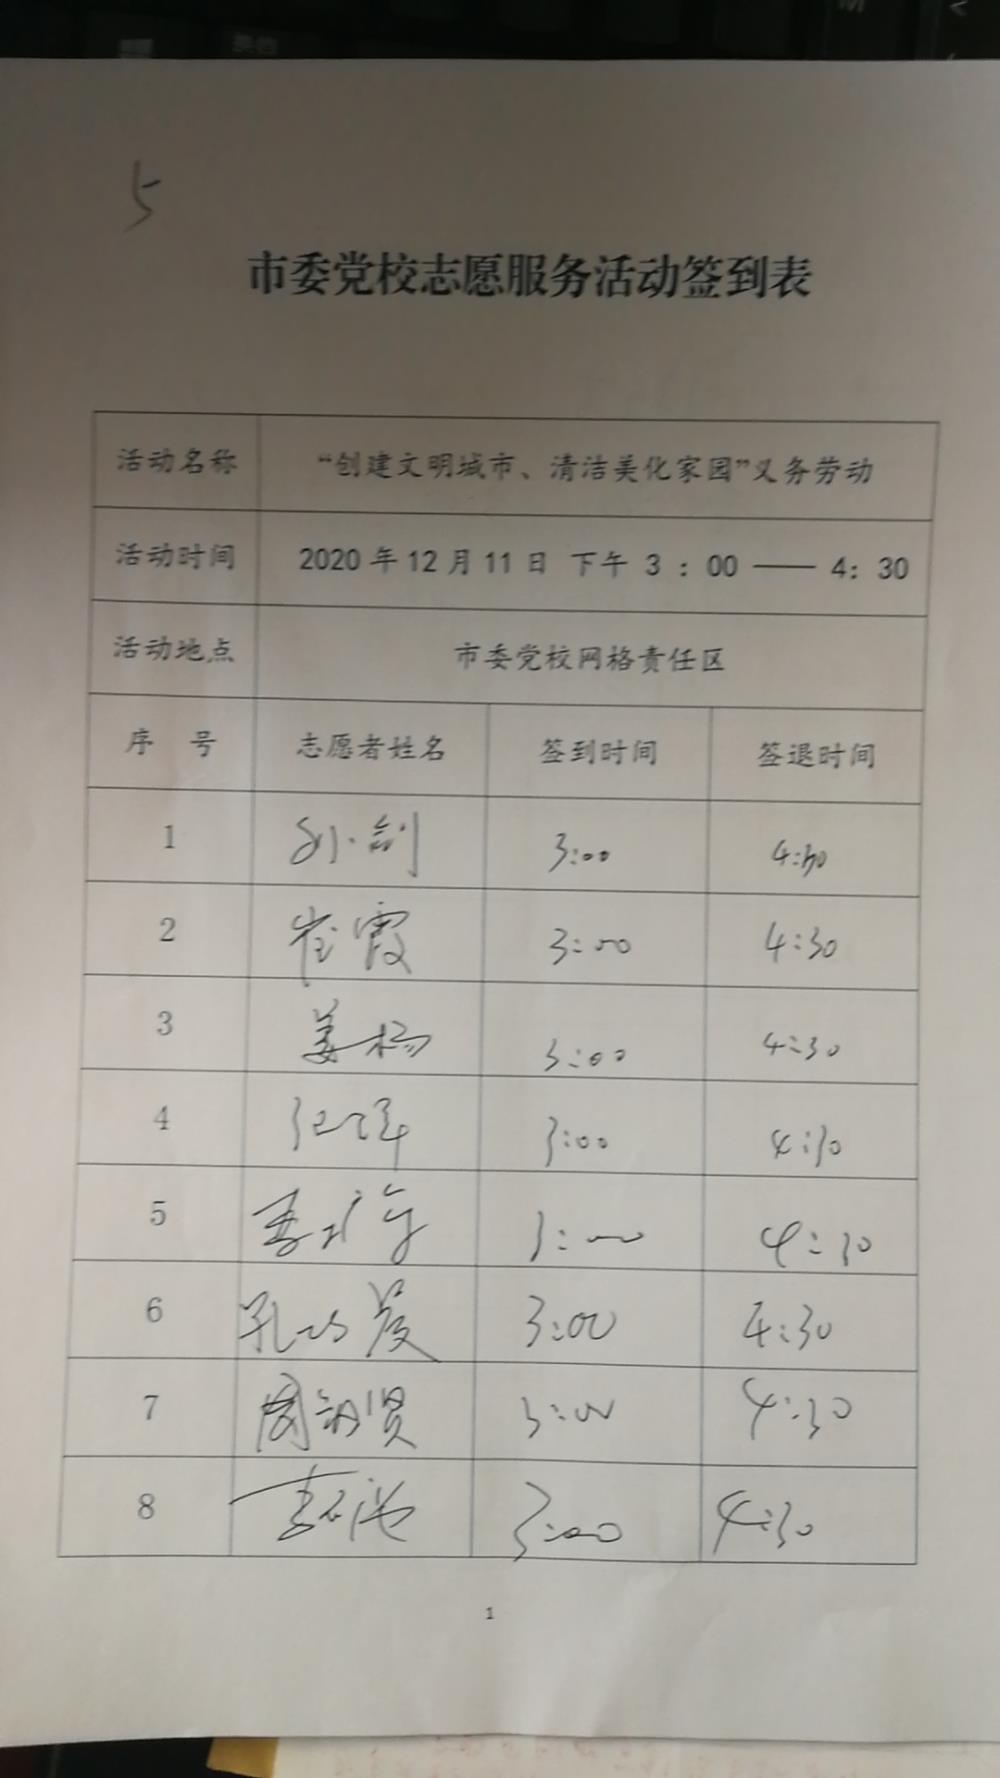 5
市委党校志愿服务活动签到表
活动名称 “创建文明城市、清洁美化家园”义务劳动
活动时间 2020年12月11日 下午 3：00 —— 4：30
活动地点 市委党校网格责任区
序 号 志愿者姓名 签到时间 签退时间
1 孙剑 3:00 4:30
2 崔霞 3:00 4:30
3 姜杨 3:00 4:30
4 3:00 4:30
5 3:00 4:30
6 孔 3:00 4:30
7 周 贤 3:00 4:30
8 李 3:00 4:30
1